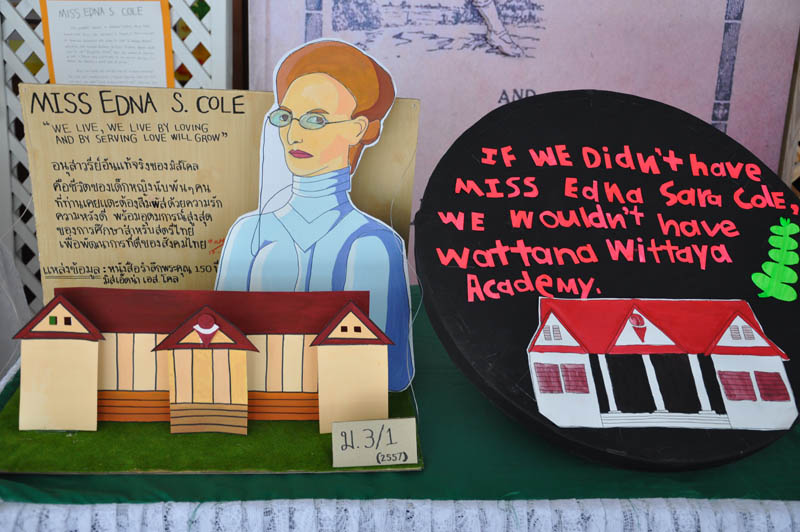 MISS EDNA S. COLE
MISS EDNA S. COLE
"WE LIVE, WE LIVE BY LOVING
AND BY SERVING LOVE WILL GROW"
อนุสาวรีย์อันแท้จริงของมิสโคล
คือชีวิตของเด็กหญิงนับพันๆคน
ที่ท่านเคยแตะต้องสัมผัสด้วยความรัก
ความหวังดี พร้อมอุดมการณ์สูงสุด
ของการศึกษาสำหรับสตรีไทย
เพื่อพัฒนาการที่ดีของสังคมไทย
แหล่งข้อมูล : หนังสือรำลึกพระคุณ 150 ปี
มิสเอ็ดน่า เอส โคล
ม.3/1
(2557)
AND
IF WE DiDn't have
MISS Edna Sara Cole,
WE WoulDn't have
Wattana Wittaya
Academy.